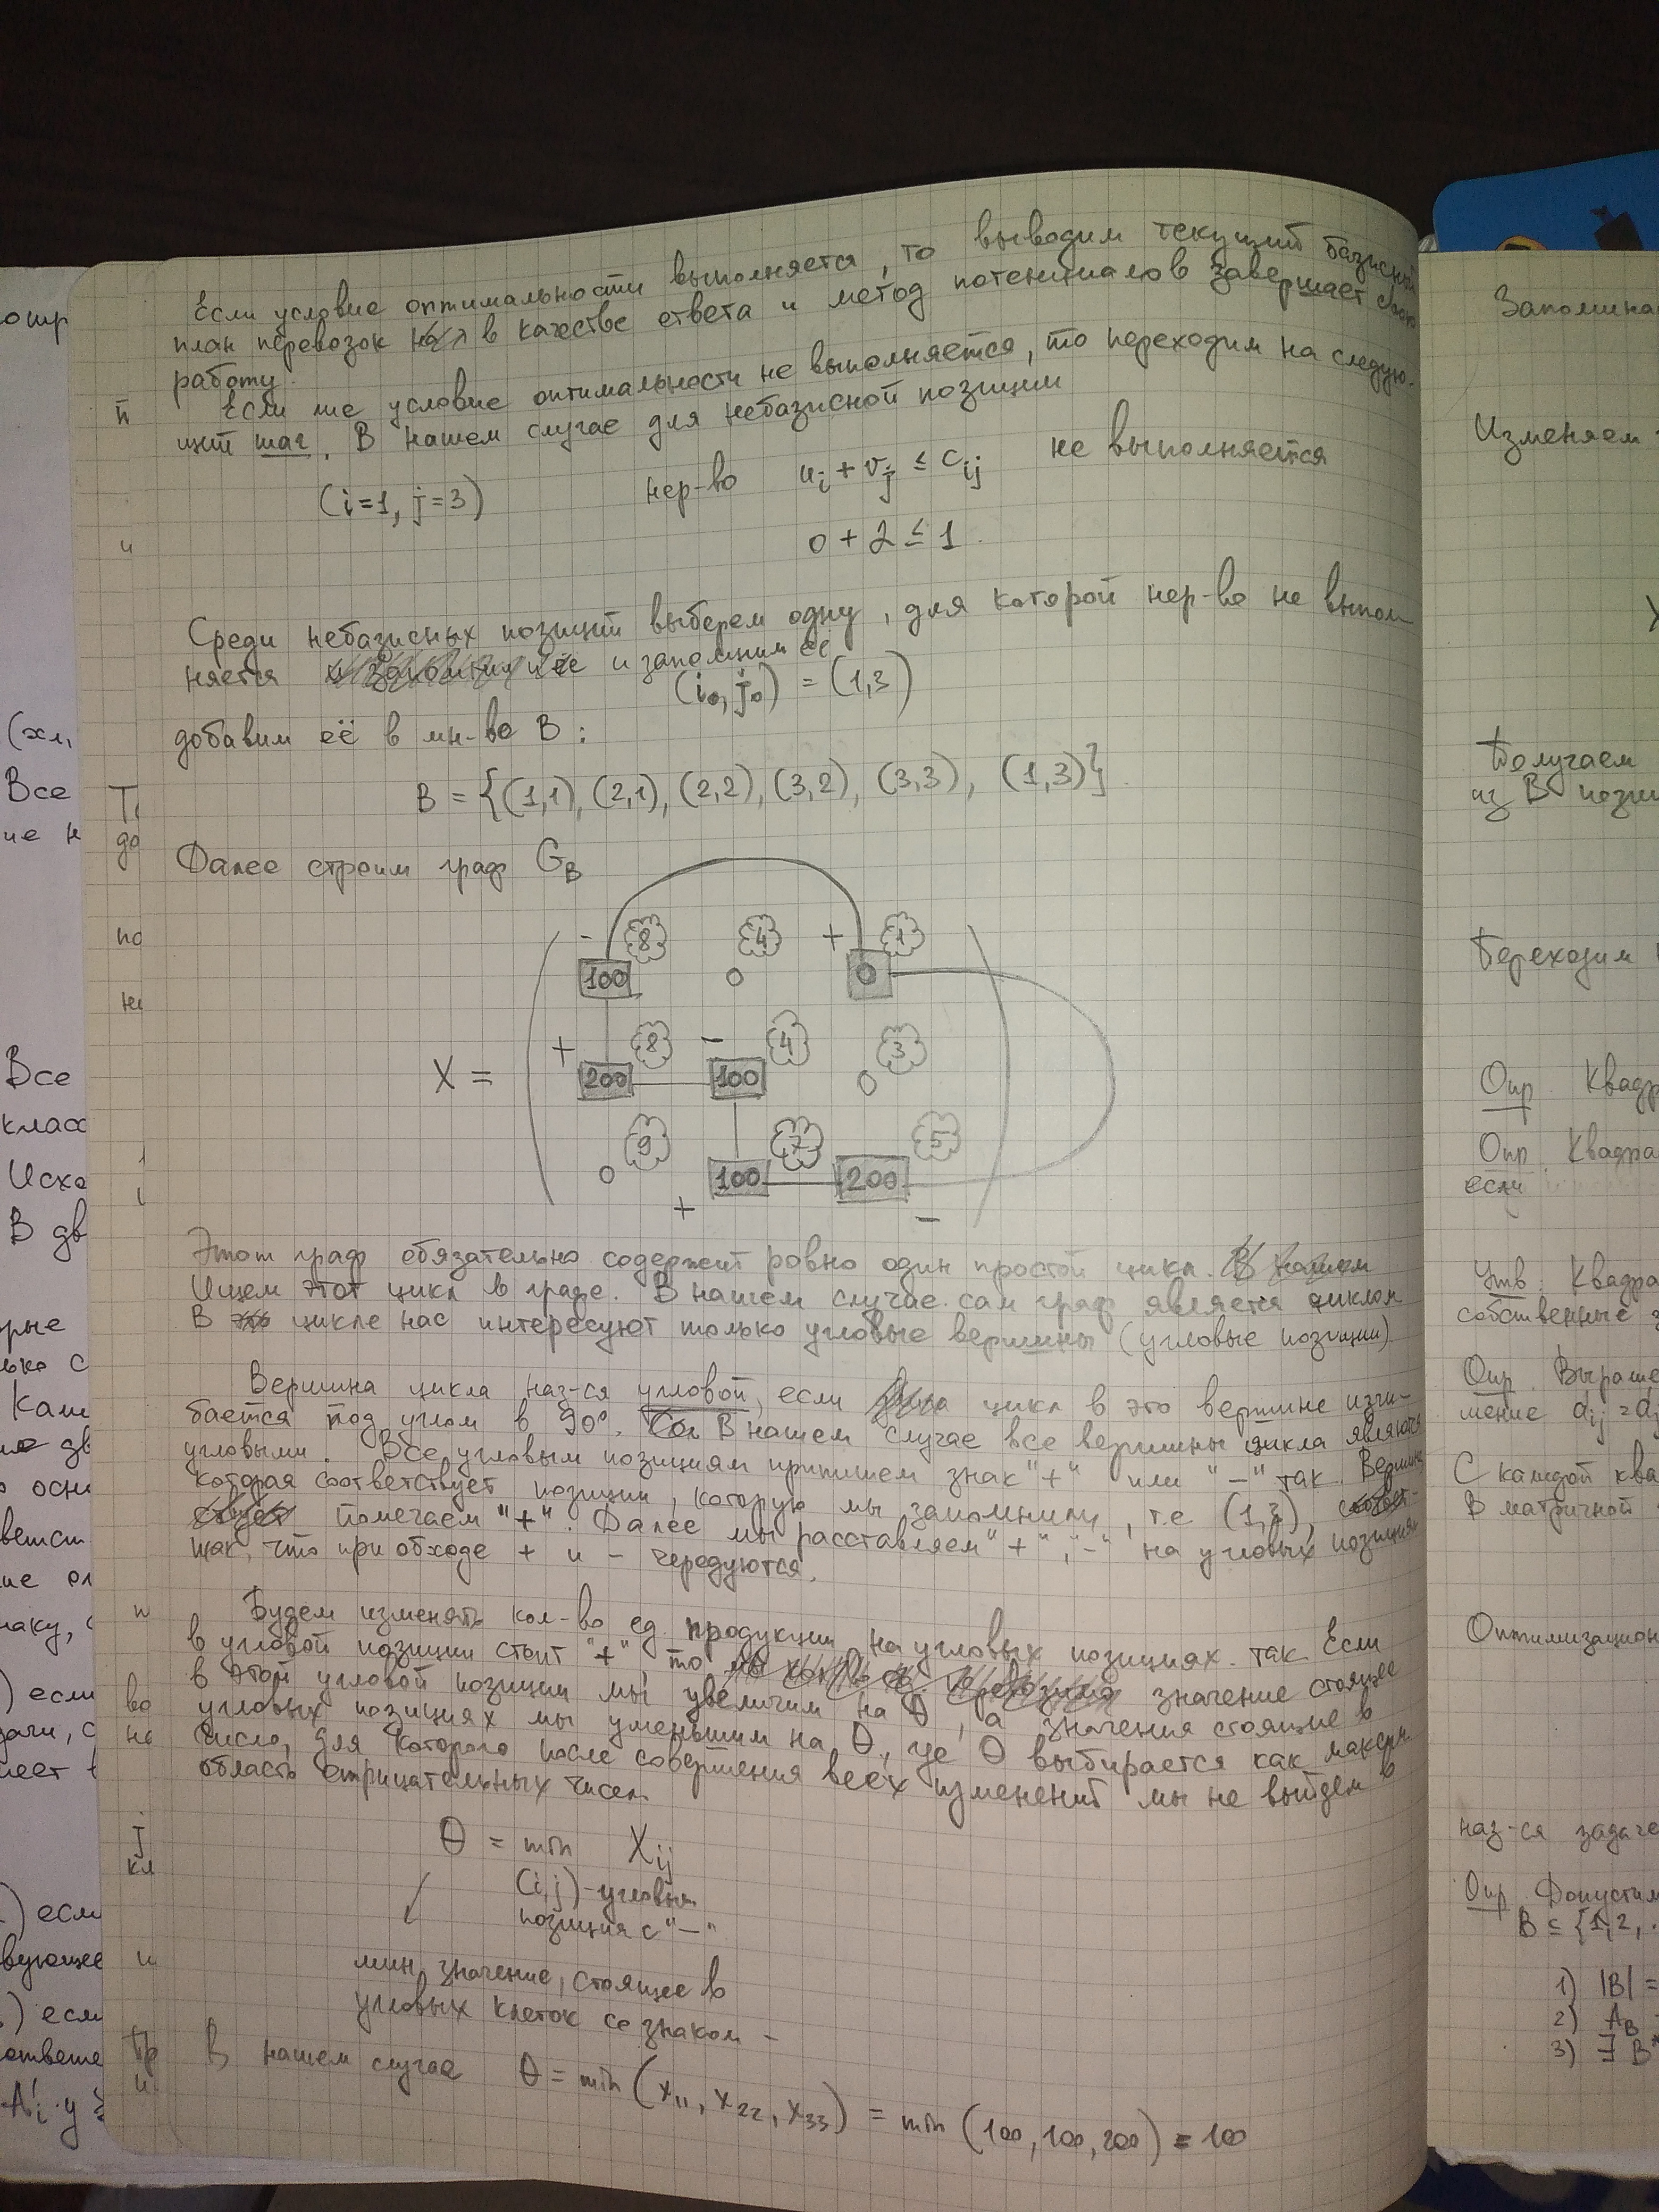 Если условие оптимальности выполняется, то выводим текущий базисный
план перевозок в качестве ответа и метод потенциалов завершает свою
работу.
Если же условие оптимальности не выполняется, то переходим на следую-
щий шаг. В нашем случае для небазисной позиции
(i=1, j=3) нер-во u_i + v_j ≤ c_ij не выполняется
0 + 2 ≤ 1
Среди небазисных позиций выберем одну, для которой нер-во не выпол-
няется и запомним её
(i₀, j₀) = (1,3)
добавим её в мн-во B:
B = {(1,1), (2,1), (2,2), (3,2), (3,3), (1,3)}
Далее строим граф G_B
- 8 4 + 1
100 0 0
+ 8 - 4 3
X = 200 100 0
9 7 5
0 100 200
+ -
Этот граф обязательно содержит ровно один простой цикл.
Ищем этот цикл в графе. В нашем случае сам граф является циклом
В цикле нас интересуют только угловые вершины (угловые позиции)
Вершина цикла наз-ся угловой, если цикл в это вершине изги-
бается под углом в 90°. В нашем случае все вершины цикла являются
угловыми. Все угловым позициям припишем знак "+" или "-" так. Вершину
которая соответствует позиции, которую мы запомнили, т.е (1,3),
помечаем "+". Далее мы расставляем "+", "-" на угловых позициях
так, что при обходе + и - чередуются.
Будем изменять кол-во ед. продукции на угловых позициях так. Если
в угловой позиции стоит "+", то значение стоящее
в этой угловой позиции мы увеличим на θ, а значения стоящие в
угловых позициях мы уменьшим на θ, где θ выбирается как максим.
число, для которого после совершения всех изменений мы не выйдем в
область отрицательных чисел.
θ = min X_ij
(i,j) - угловая
позиция с "-"
мин. значение, стоящее в
угловых клеток со знаком -
В нашем случае θ = min (x₁₁, x₂₂, x₃₃) = min (100, 100, 200) = 100
Запомина
Изменяем
X
Получаем
из B пози
Переходим
Опр. Квадра
Опр. Квадра
если
Утв. Квадра
собственные
Опр. Выраже
С каждой ква
В матричной
Оптимизацион
наз-ся задаче
Опр. Допустим
B ⊆ {1,2,
1) |B| =
2) A_B
3) ∃ B
(хл,
Все
Все
класс
Исхо
В дв
) если
вующее
) если